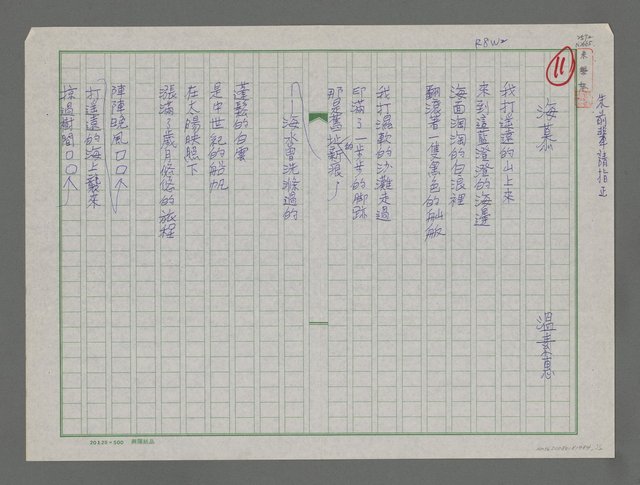 朱前輩請指正
11
R8W2
海慕
溫素惠
我打遙遠的山上來
來到這藍澄澄的海邊
海面濶濶的白浪裡
翻滾著一隻黑色的舢舨
我打濕軟的沙灘走過
印滿了一步步的腳跡
那是舊地的新痕
海水曾洗滌過的
蓬鬆的白雲
是中世紀的船帆
在太陽映照下
漲滿了歲月悠悠的旅程
陣陣晚風
打遙遠的海上襲來
掠過樹間
20125-500